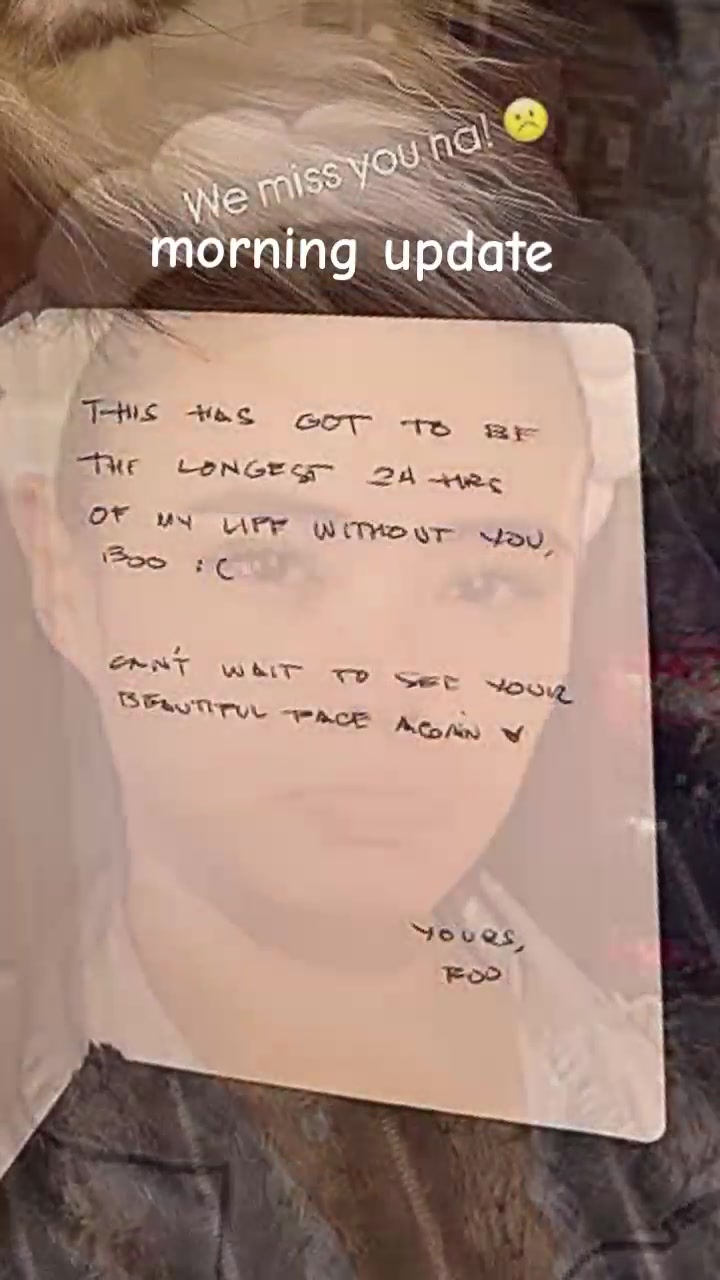 We miss you na! ☹️
morning update
THIS HAS GOT TO BE
THE LONGEST 24 HRS
OF MY LIFE WITHOUT YOU,
BOO :(
CAN'T WAIT TO SEE YOUR
BEAUTIFUL FACE AGAIN ♥
YOURS,
FOO